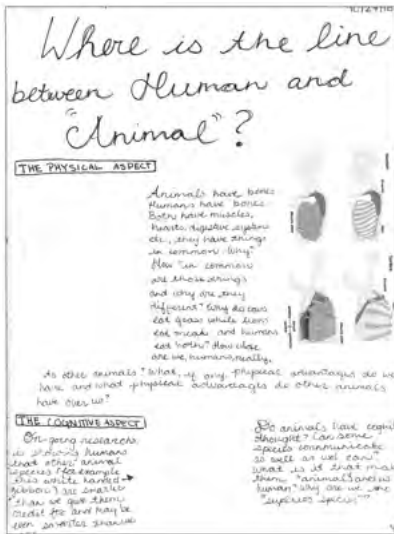 Where is the line
between Human and
"Animal"?
THE PHYSICAL ASPECT
Animals have bones
Humans have bones.
Both have muscles,
hearts, digestive systems
etc., they have things
in common. Why?
How "in common"
are those things
and why are they
different? Why do cows
eat grass while lions
eat meat and humans
eat both? How close
are we, humans, really,
to other animals? What, if any physical advantages do we
have and what physical advantages do other animals
have over us?
THE COGNITIVE ASPECT
On-going research
is showing humans
that other animal
species (for example
this white handed
gibbon) are smarter
than we give them
credit for and may be
even smarter than
Do animals have
thought? Can some
species communicate
as well as we can?
What is it that
them "animals" and us
human? Why are we
"superior species"?